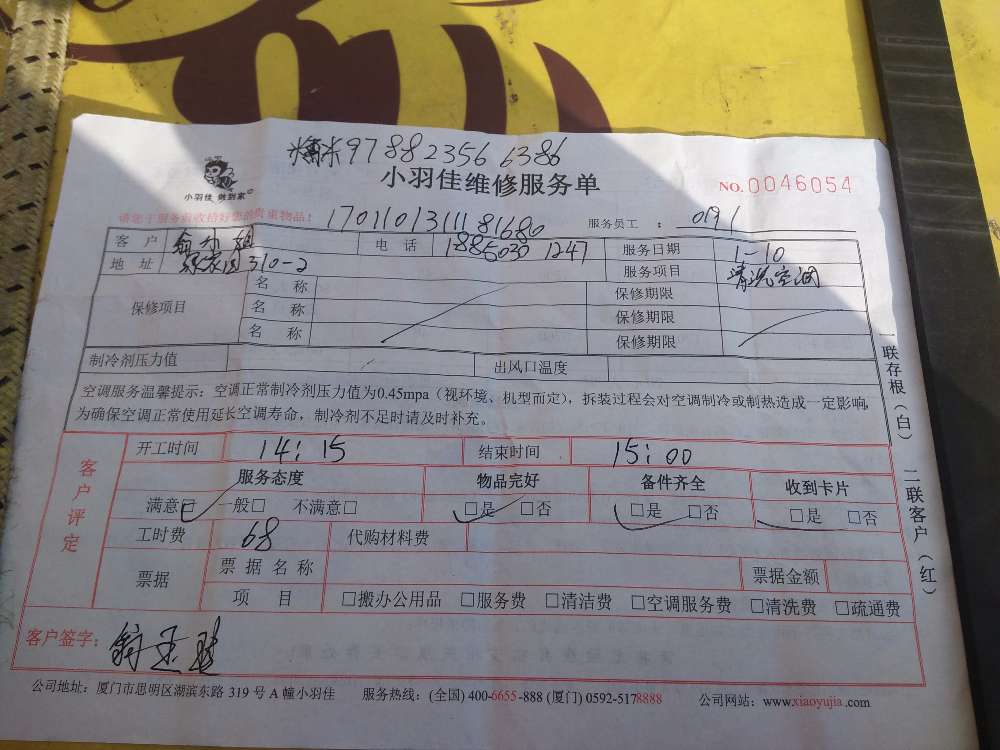 糯米97882356 6386
小羽佳 做到家
小羽佳维修服务单
NO.0046054
请您于服务前收拾好您的贵重物品!
1701101311181680
服务员工 : 0191
客户 俞小姐 电话 1885030 1247 服务日期 1-10
地址 310-2 服务项目 清洗空调
保修项目 名称 保修期限
名称 保修期限
名称 保修期限
制冷剂压力值 出风口温度
空调服务温馨提示:空调正常制冷剂压力值为0.45mpa(视环境、机型而定),拆装过程会对空调制冷或制热造成一定影响,
为确保空调正常使用延长空调寿命,制冷剂不足时请及时补充。
一联存根(白) 二联客户(红)
客户评定
开工时间 14:15 结束时间 15:00
服务态度 物品完好 备件齐全 收到卡片
满意□ 一般□ 不满意□ □是 □否 □是 □否 □是 □否
工时费 68 代购材料费
票据 票据名称 票据金额
项目 □搬办公用品 □服务费 □清洁费 □空调服务费 □清洗费 □疏通费
客户签字:
公司地址:厦门市思明区湖滨东路 319 号 A 幢小羽佳 服务热线:(全国) 400-6655-888 (厦门) 0592-5178888 公司网站:www.xiaoyujia.com